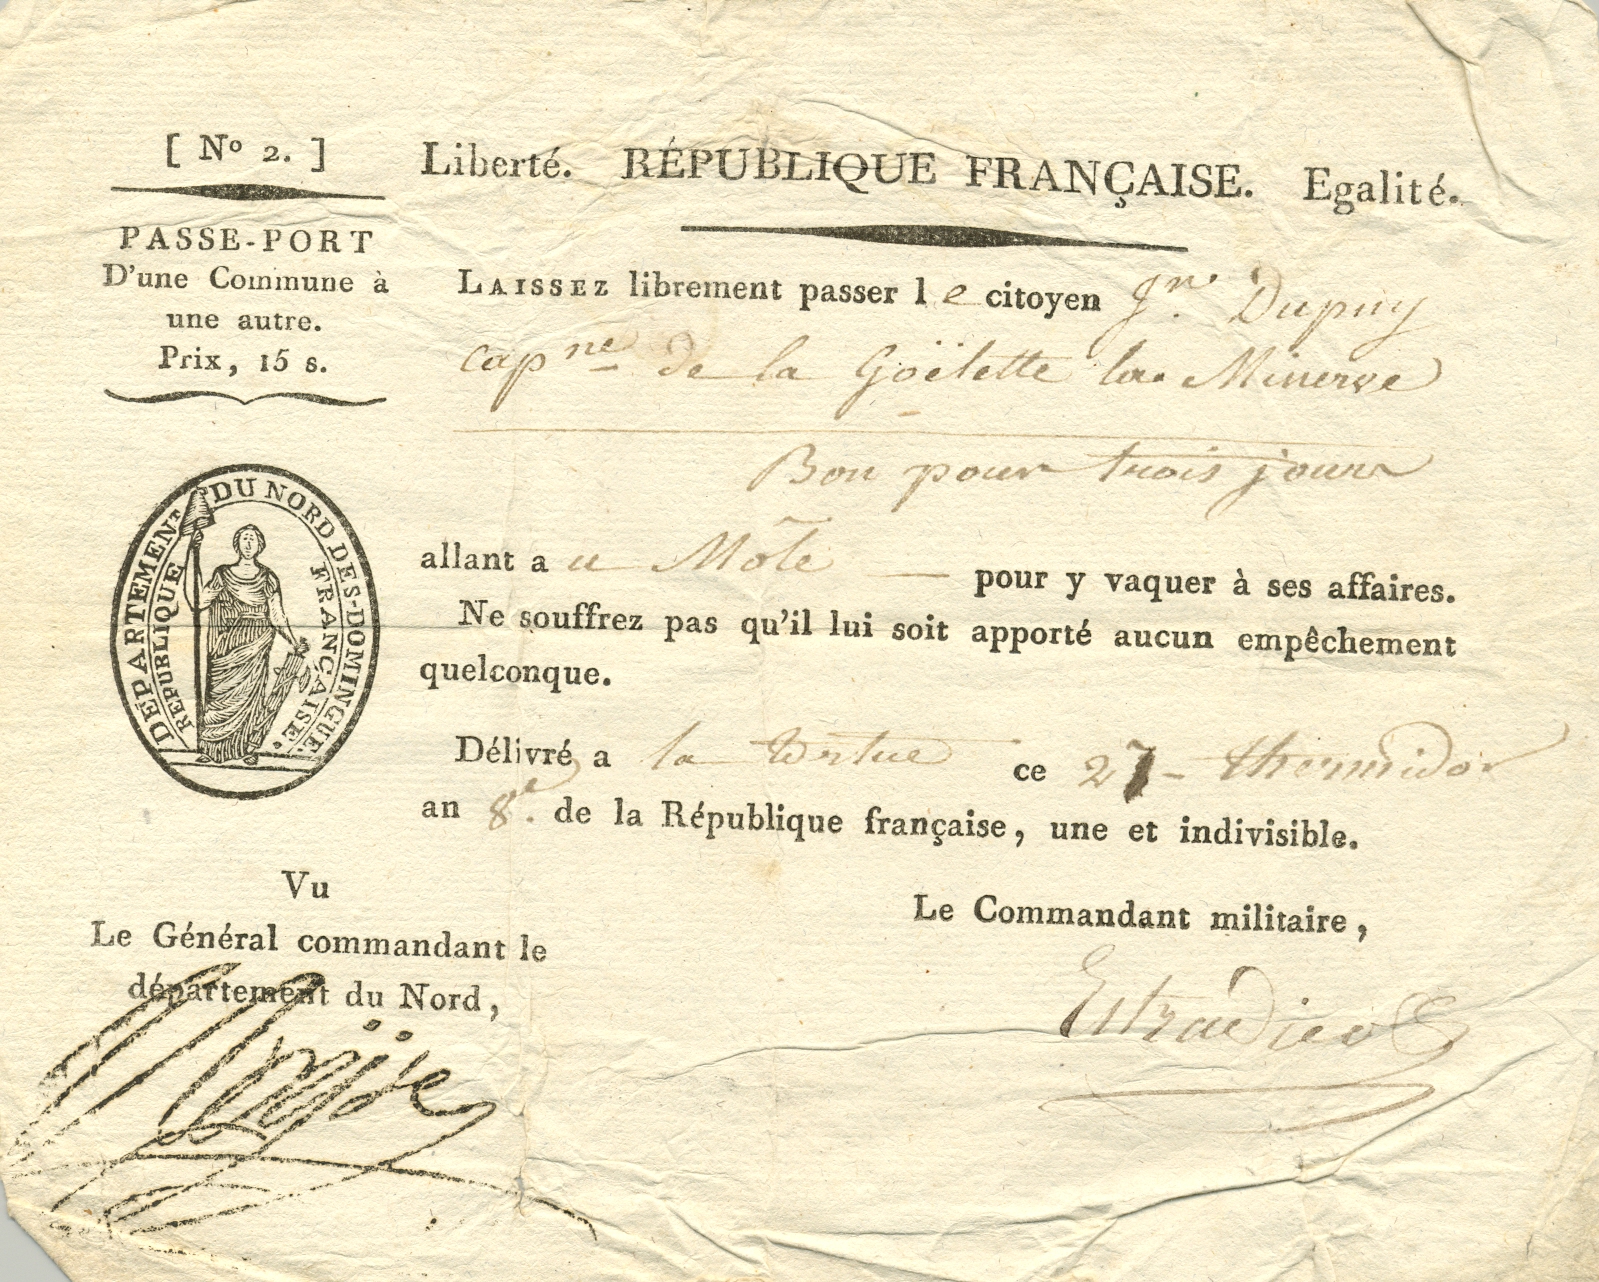 [ Nº 2. ]
Liberté. RÉPUBLIQUE FRANÇAISE. Egalité.
PASSE-PORT
D'une Commune à
une autre.
Prix, 15 s.
LAISSEZ librement passer le citoyen Jn. Dupuy
capne de la Goëlette la Minerve
Bon pour trois jours
DÉPARTEMENT DU NORD DE S-DOMINGUE.
RÉPUBLIQUE FRANÇAISE.
allant au Môle — pour y vaquer à ses affaires.
Ne souffrez pas qu'il lui soit apporté aucun empêchement
quelconque.
Délivré a la tortue ce 27 - thermidor
an 8e. de la République française, une et indivisible.
Vu
Le Général commandant le
département du Nord,
Moÿse
Le Commandant militaire,
Estradieu